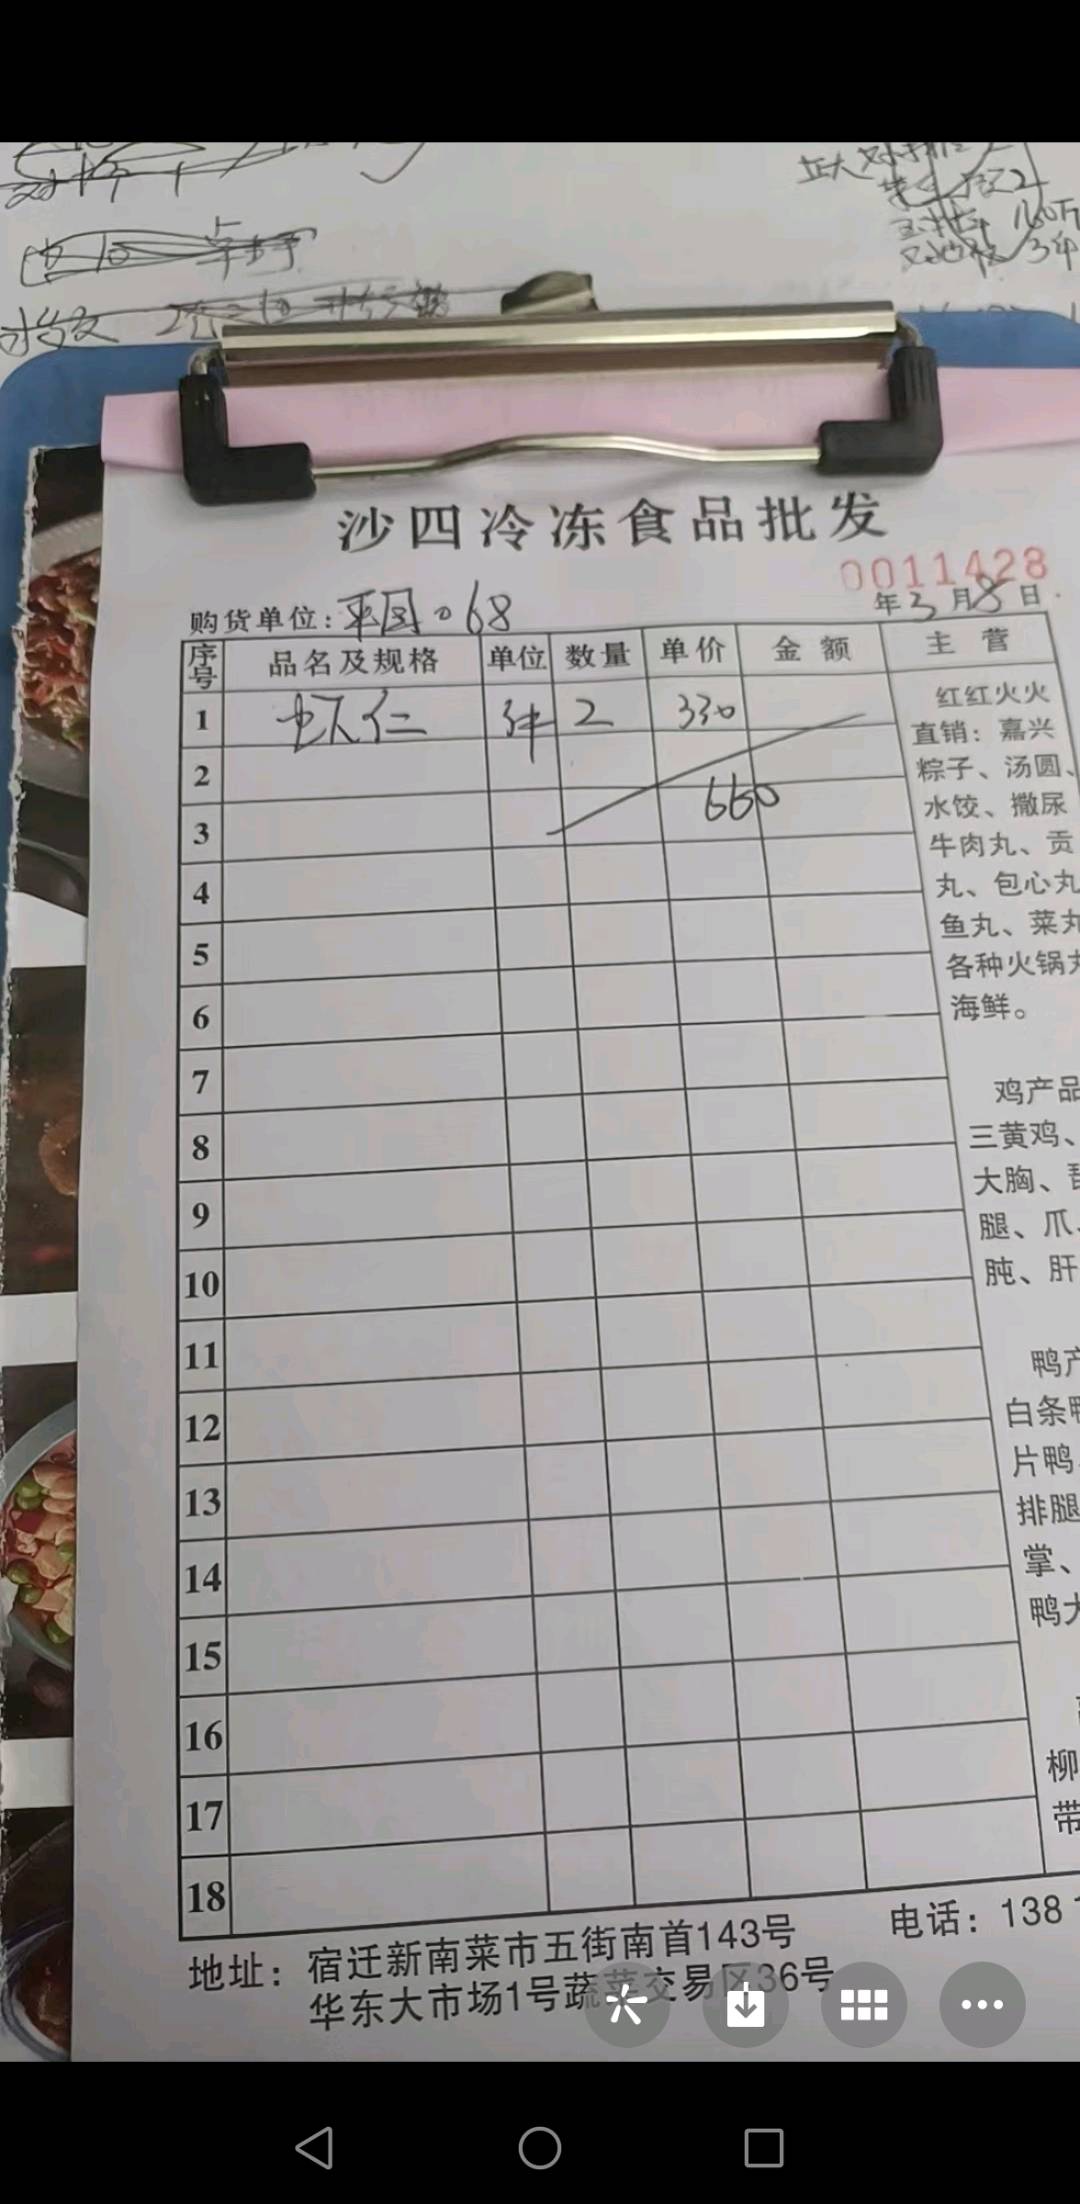 沙四冷冻食品批发
0011428
购货单位: 068
年3月8日
序号 品名及规格 单位 数量 单价 金额 主营
1 虾仁 件 2 330
2
660
3
4
5
6
7
8
9
10
11
12
13
14
15
16
17
18
红红火火
直销：嘉兴
粽子、汤圆、
水饺、撒尿
牛肉丸、贡
丸、包心丸
鱼丸、菜丸
各种火锅丸
海鲜。
鸡产品
三黄鸡、
大胸、琵
腿、爪、
肫、肝
鸭产
白条鸭
片鸭
排腿
掌、
鸭大
柳
带
地址：宿迁新南菜市五街南首143号
华东大市场1号蔬菜交易区36号
电话：138